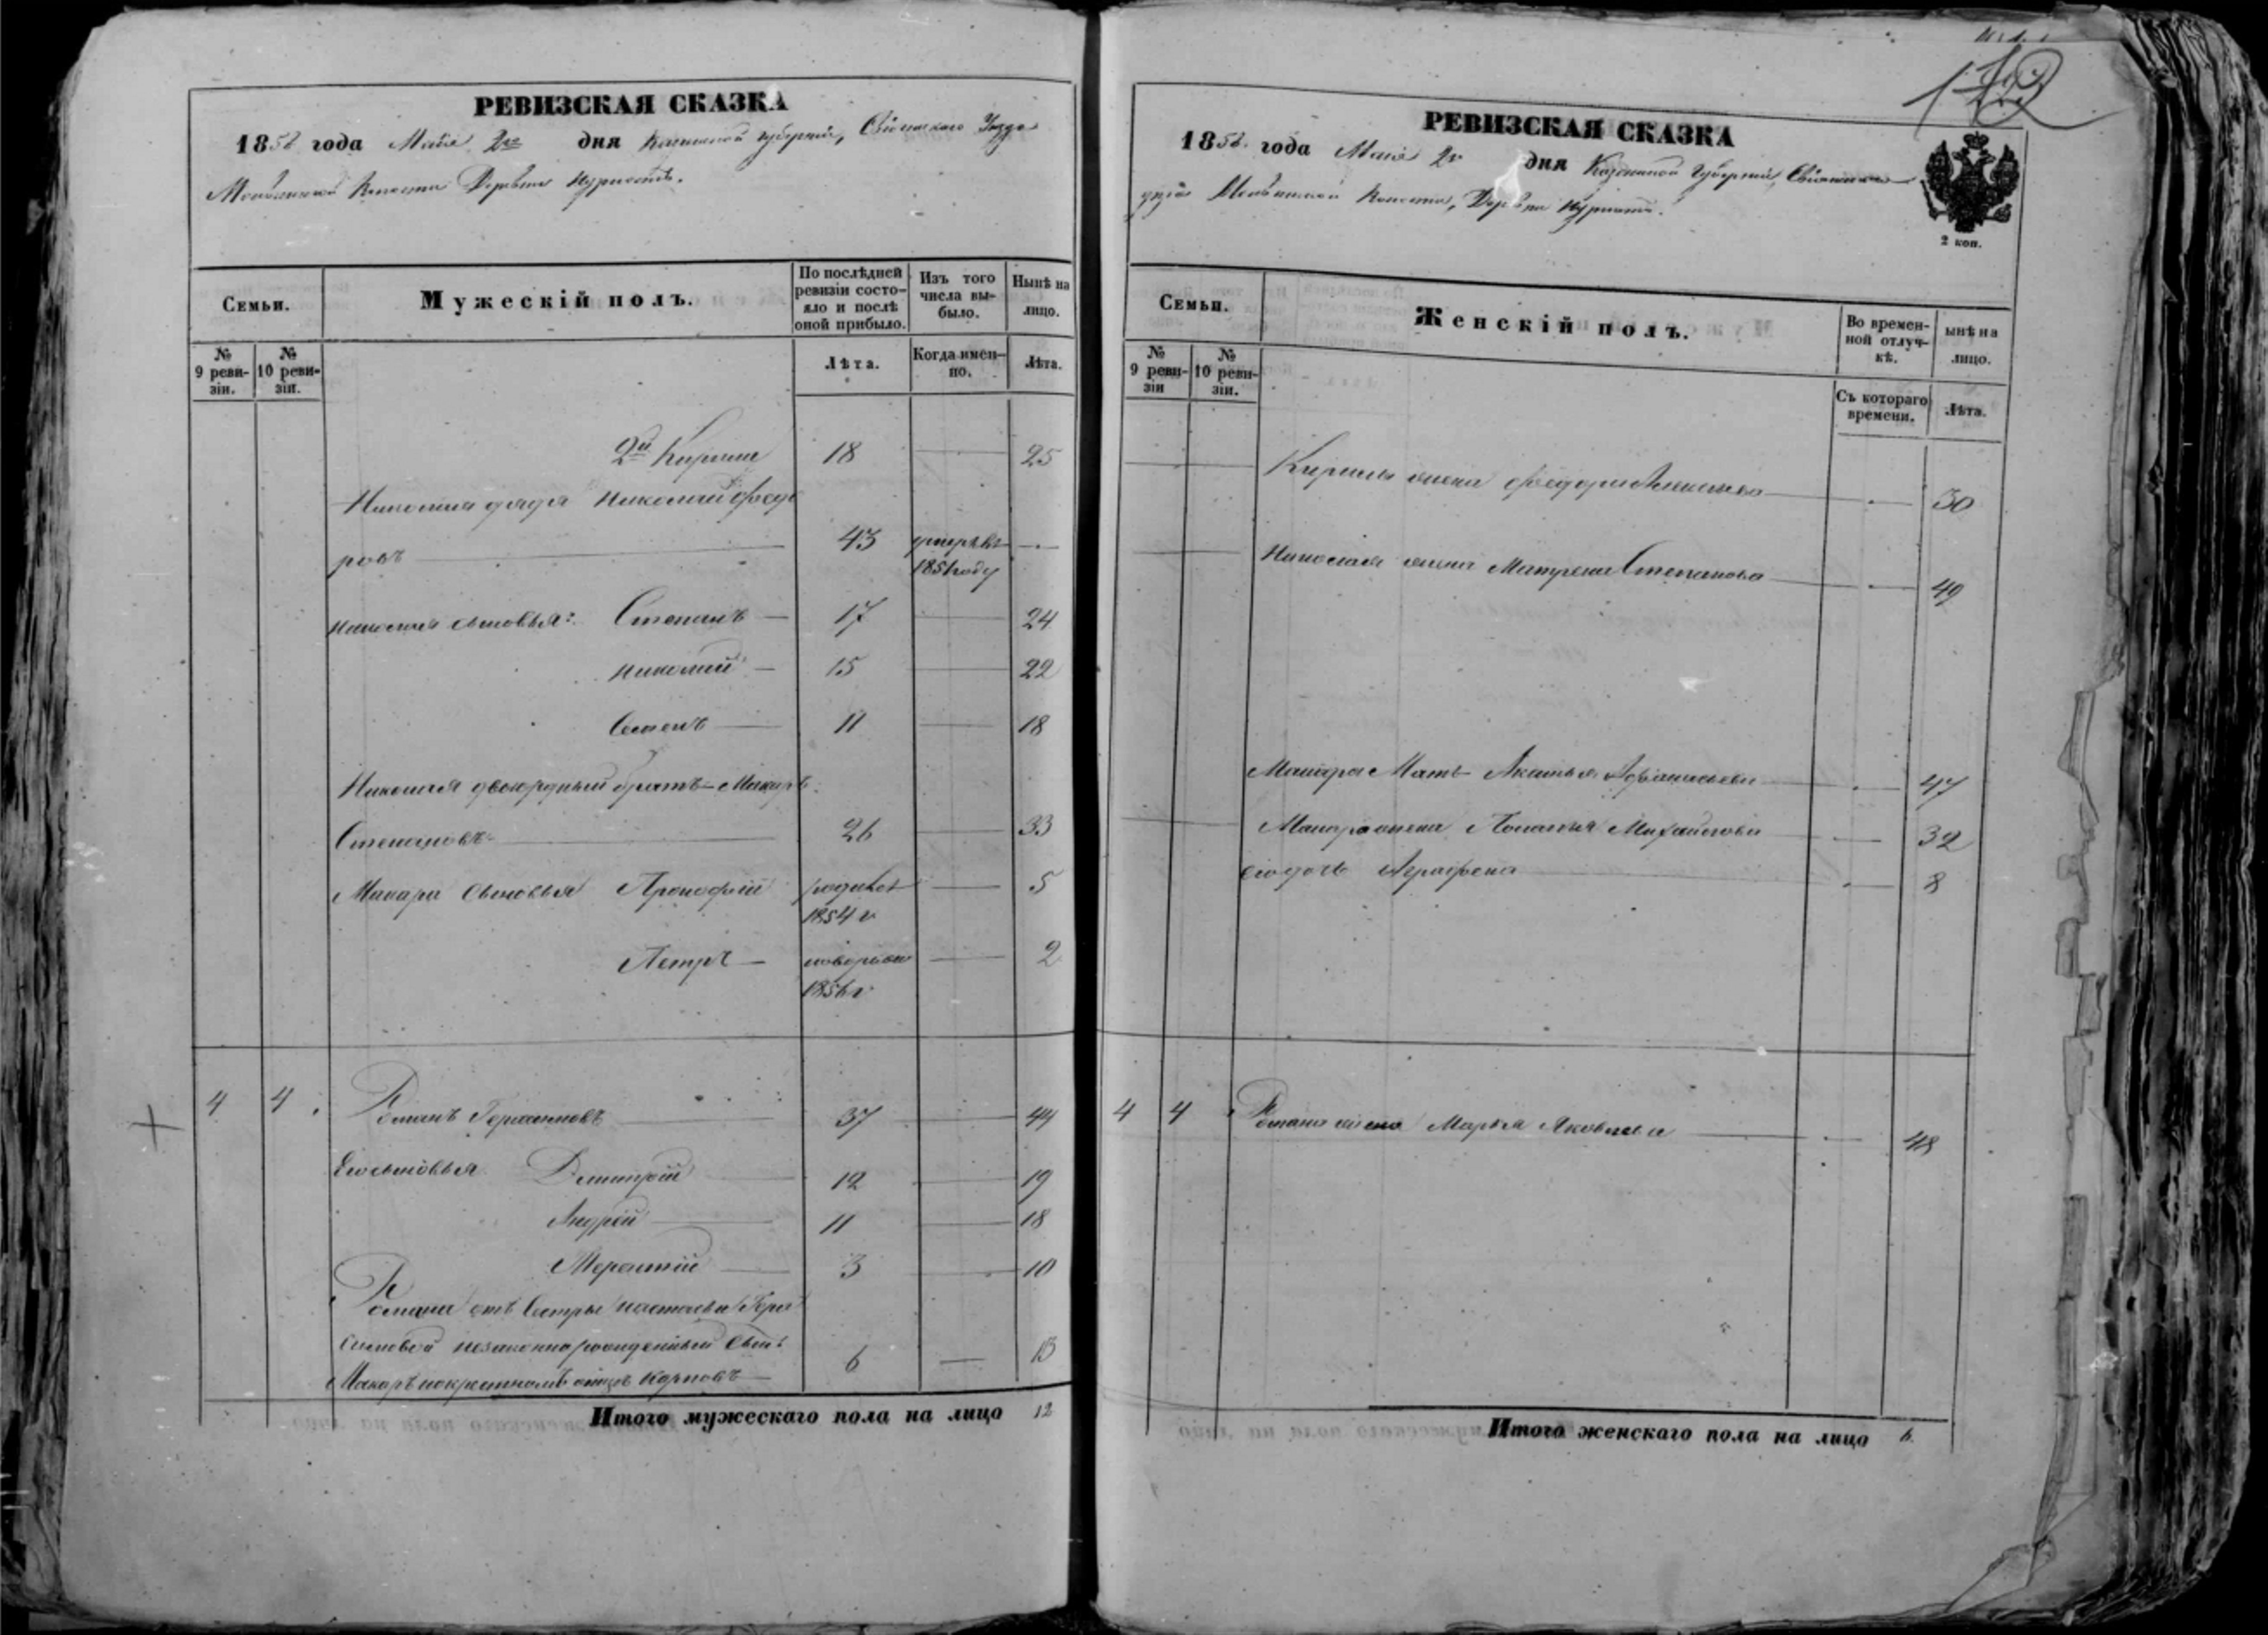 РЕВИЗСКАЯ СКАЗКА
1858 года Мая 2го дня Казанской губернии, Свіяжскаго Уезда
Волости Деревни
Семьи.
Мужескій полъ.
По послѣдней ревизіи состояло и послѣ оной прибыло.
Изъ того числа выбыло.
Нынѣ на лицо.
№ 9 ревизіи.
№ 10 ревизіи.
Лѣта.
Когда именно.
Лѣта.
2й Кирила 18 25
Николая дядя Николай Федо
ровъ 43 умре въ 1851 году
Николая сыновья: Степанъ 17 24
Николай 15 22
Семенъ 11 18
Николая двоюрдный братъ Макаръ
Степановъ 26 33
Макара сыновья Прокофій родился 1854 г 5
Петръ 1856 г 2
4 4 Романъ Герасимовъ 37 44
Его сыновья Дмитрій 12 19
Андрей 11 18
3 10
Романа отъ Сестры Настасьи Гера
симовой незаконнорожденный Сынъ
Макаръ по крестному отцу Карповъ 6 13
Итого мужескаго пола на лицо 12
РЕВИЗСКАЯ СКАЗКА
1858 года Мая 2го дня Казанской Губерніи, Свіяжскаго
уезда Волости, Деревни
2 коп.
Семьи.
Женскій полъ.
Во временной отлучкѣ.
ынѣ на лицо.
№ 9 ревизіи
№ 10 ревизіи.
Съ котораго времени.
Лѣта.
Кирилы жена Федора 30
Николая жена Матрена Степанова 49
Макара Мать Акатья Афанасьева 47
Макара жена Михайлова 32
его дочь Аграфена 8
4 4 Романа жена Марья Яковлева 48
Итого женскаго пола на лицо 6.